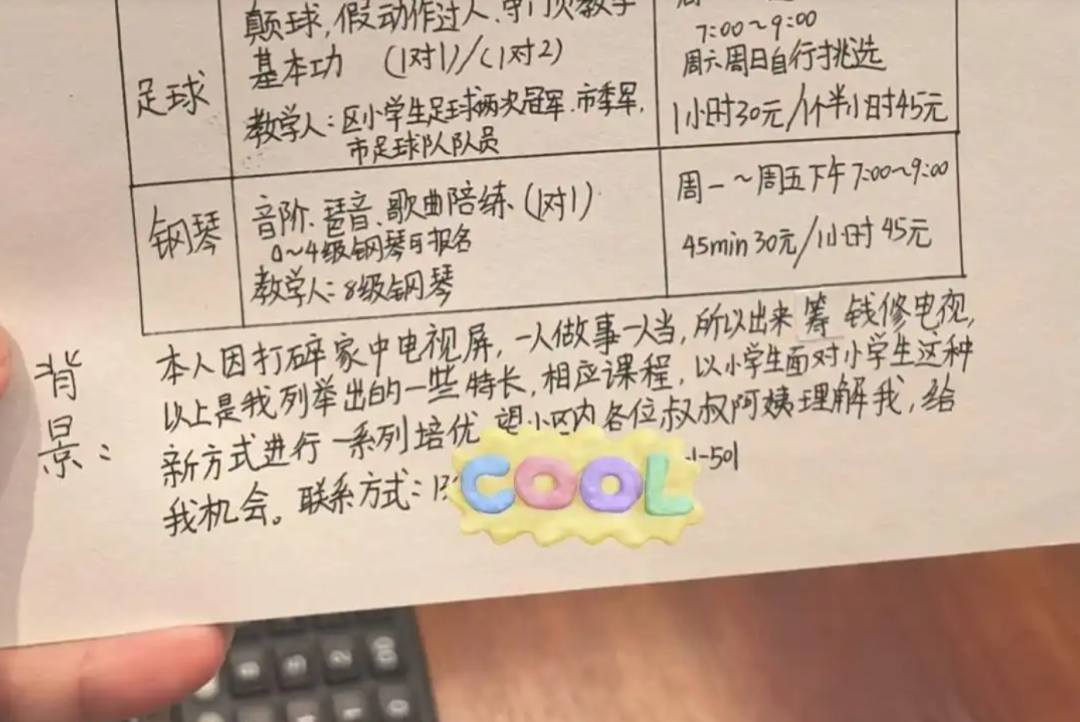 颠球,假动作过人.守门员教学
7:00~9:00
足球
基本功 (1对1)/(1对2)
周六周日自行挑选
教学人:区小学生足球两次冠军.市季军.
市足球队队员
1小时30元/1个半小时45元
钢琴
音阶.琶音.歌曲陪练.(1对1)
0~4级钢琴可报名
教学人:8级钢琴
周一~周五下午7:00~9:00
45min 30元/1小时 45元
背景:
本人因打碎家中电视屏,一人做事一人当,所以出来筹钱修电视,
以上是我列举出的一些特长,相应课程,以小学生面对小学生这种
新方式进行一系列培优 望小区内各位叔叔阿姨理解我,给
我机会。联系方式:13
1-501
COOL